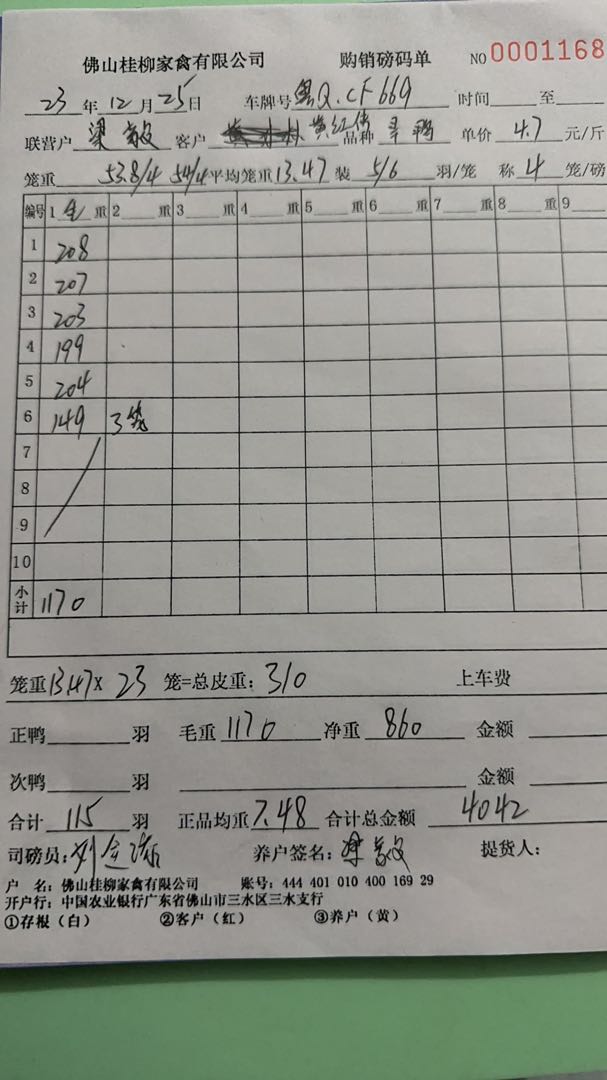 佛山桂柳家禽有限公司 购销磅码单 NO 0001168
23 年 12 月 25 日 车牌号 粤Q.CF669 时间 至
联营户 梁敬 客户 黄红伟 品种 旱鸭 单价 4.7 元/斤
笼重 53.8/4 54/4 平均笼重 13.47 装 5/6 羽/笼 称 4 笼/磅
编号 1 重 2 重 3 重 4 重 5 重 6 重 7 重 8 重 9
1 208
2 207
3 203
4 199
5 204
6 149 3笼
7
8
9
10
小计 1170
笼重 13.47 X 23 笼=总皮重: 310 上车费
正鸭 羽 毛重 1170 净重 860 金额
次鸭 羽 金额
合计 115 羽 正品均重 7.48 合计总金额 4042
司磅员: 养户签名: 梁敬 提货人:
户 名: 佛山桂柳家禽有限公司 账号: 444 401 010 400 169 29
开户行: 中国农业银行广东省佛山市三水区三水支行
①存根(白) ②客户(红) ③养户(黄)